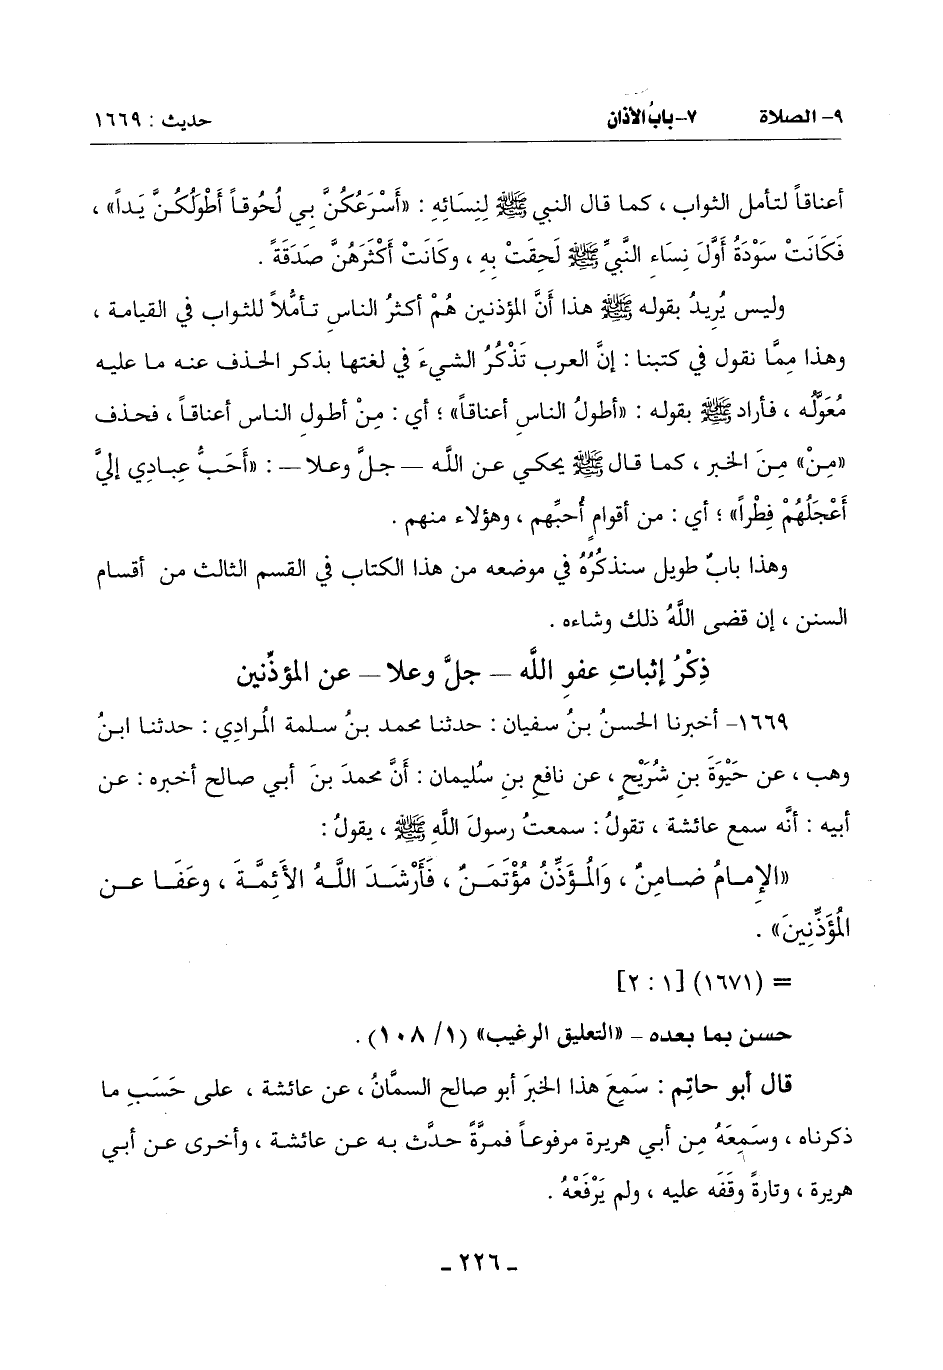 ٩- الصلاة ٧- بابُ الأذان حديث : ١٦٦٩
أعناقاً لتأمل الثواب ، كما قال النبي ﷺ لِنِسَائِهِ : «أَسْرَعُكُنَّ بي لُحُوقاً أَطْوَلُكُنَّ يَداً» ،
فَكَانَتْ سَوْدَةُ أَوَّلَ نِسَاءِ النَّبِيِّ ﷺ لَحِقَتْ بِهِ ، وكَانَتْ أَكْثَرَهُنَّ صَدَقَةً .
وليس يُرِيدُ بقوله ﷺ هذا أَنَّ المؤذنين هُمْ أكثرُ الناسِ تأمُّلاً للثواب في القيامة ،
وهذا مِمَّا نقول في كتبنا : إنَّ العرب تَذْكُرُ الشيءَ في لغتها بذكر الحذف عنه ما عليه
مُعَوَّلُه ، فأراد ﷺ بقوله : «أطولُ الناسِ أعناقاً» ؛ أي : مِنْ أطول الناس أعناقاً ، فحذف
«مِنْ» مِنَ الخبر ، كما قال ﷺ يحكي عن اللَّه – جلَّ وعلا – : «أَحَبُّ عِبادي إليَّ
أَعْجَلُهُمْ فِطْراً» ؛ أي : من أقوامٍ أُحبِّهم ، وهؤلاء منهم .
وهذا بابٌ طويل سنذكُرُهُ في موضعه من هذا الكتاب في القسم الثالث من أقسام
السنن ، إن قضى اللَّهُ ذلك وشاءه .
ذِكْرُ إثباتِ عفوِ اللَّه – جلَّ وعلا – عن المؤذِّنين
١٦٦٩- أخبرنا الحسنُ بنُ سفيان : حدثنا محمد بنُ سلمة المُرادي : حدثنا ابنُ
وهب ، عن حَيْوَةَ بنِ شُرَيْحٍ ، عن نافعِ بنِ سُليمان : أنَّ محمدَ بنَ أبي صالح أخبره : عن
أبيه : أنَّه سمع عائشة ، تقولُ : سمعتُ رسولَ اللَّهِ ﷺ ، يقولُ :
«الإمـامُ ضـامِنٌ ، وَالمُؤَذِّنُ مُؤْتَمَـنٌ ، فَأَرْشَـدَ اللَّـهُ الأَئِمَّـةَ ، وعَفَـا عـن
المُؤَذِّنِينَ» .
= (١٦٧١) [١ : ٢]
حسن بما بعده – «التعليق الرغيب» (١/ ١٠٨) .
قال أبو حاتِم : سَمِعَ هذا الخبرَ أبو صالح السمَّانُ ، عن عائشة ، على حَسَبِ ما
ذكرناه ، وسَمِعَهُ مِن أبي هريرة مرفوعاً فمرَّةً حدَّث به عن عائشة ، وأخرى عن أبي
هريرة ، وتارةً وقَفَه عليه ، ولم يَرْفَعْهُ .
ـ ٢٢٦ ـ